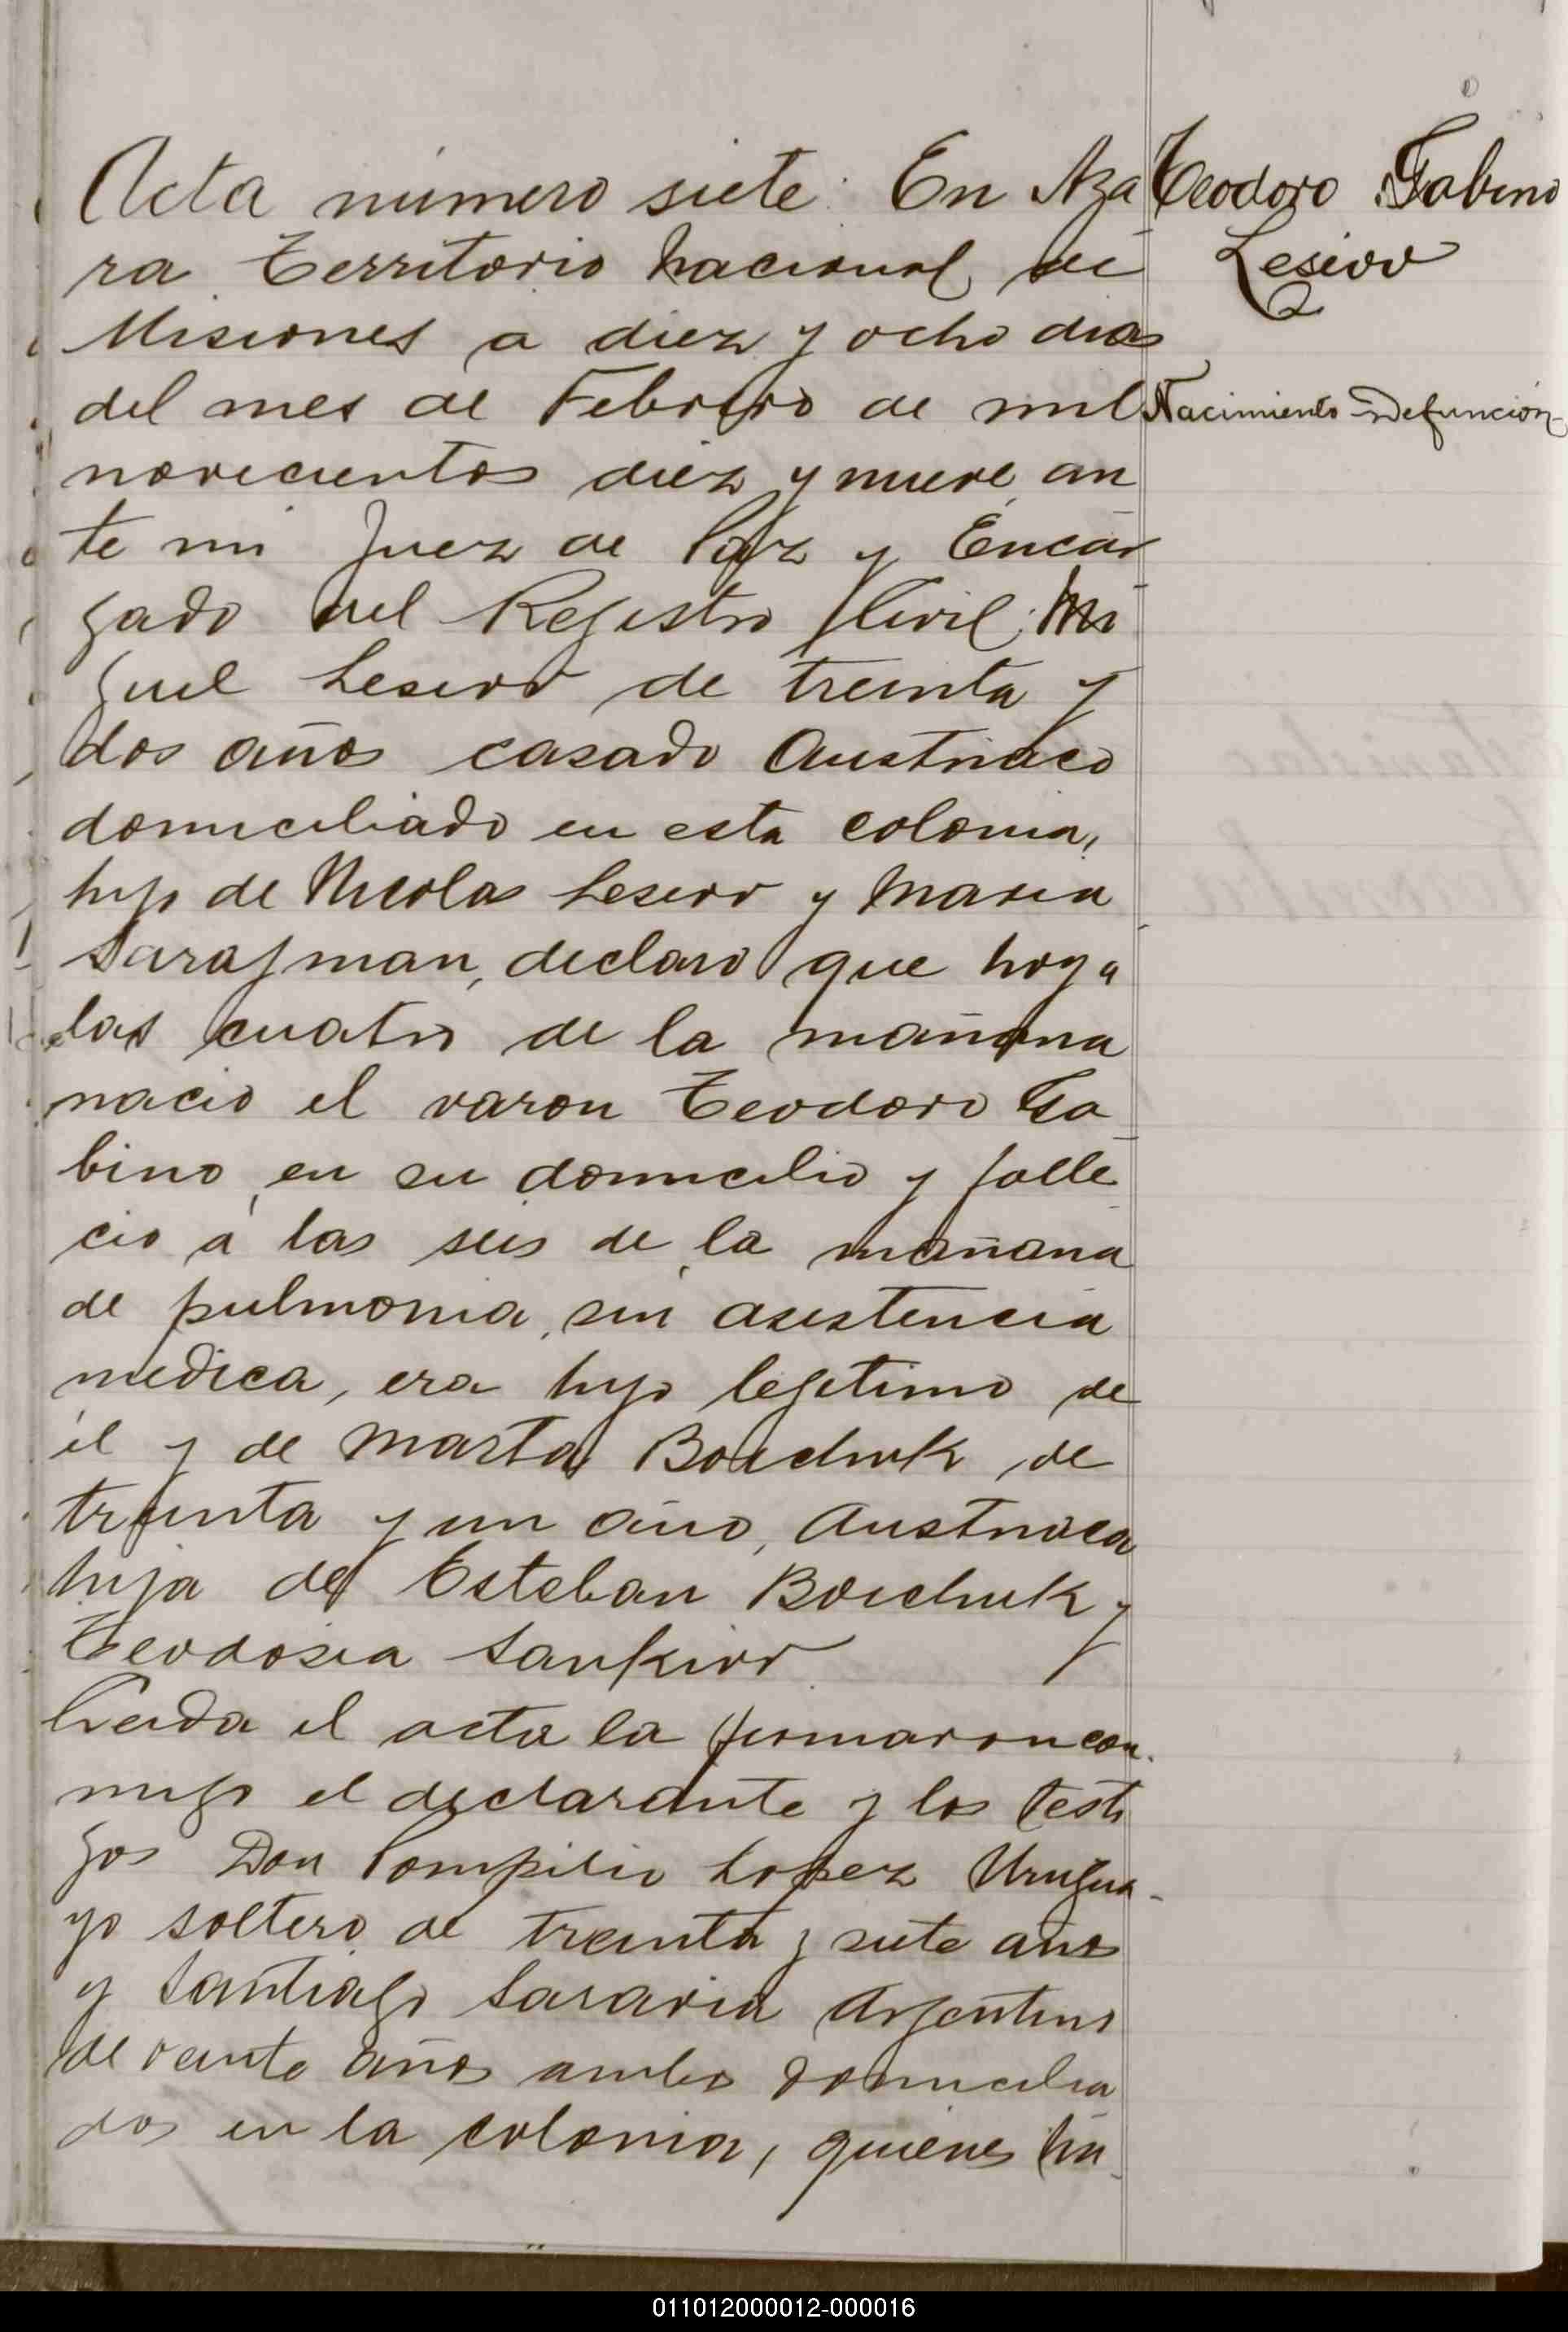 Teodoro Gabino
Lesiov
Nacimiento Defunción
Acta número siete: En Aza
ra Territorio Nacional de
Misiones a diez y ocho dias
del mes de Febrero de mil
novecientos diez y nueve, an
te mi Juez de Paz y Encar
gado del Registro Civil; Mi
guel Lesiov de treinta y
dos años casado Austriaco
domiciliado en esta colonia,
hijo de Nicolas Lesiov y Maria
Sarajman, declaro que hoy a
las cuatro de la mañana
nacio el varon Teodoro Ga
bino, en su domicilio y falle
cio á las seis de la mañana
de pulmonia, sin asistencia
medica, era hijo legitimo de
él y de Marta Boichuk de
treinta y un año, Austriaca
hija de Esteban Boichuk y
Teodosia Sankiov
Leida el acta la firmaron con
migo el declarante y los testi
gos Don Pompilio Lopez Urugua-
yo soltero de treinta y siete años
y Santiago Saravia Argentino
de veinte años ambos domicilia
dos en la colonia, quienes ha
011012000012-000016